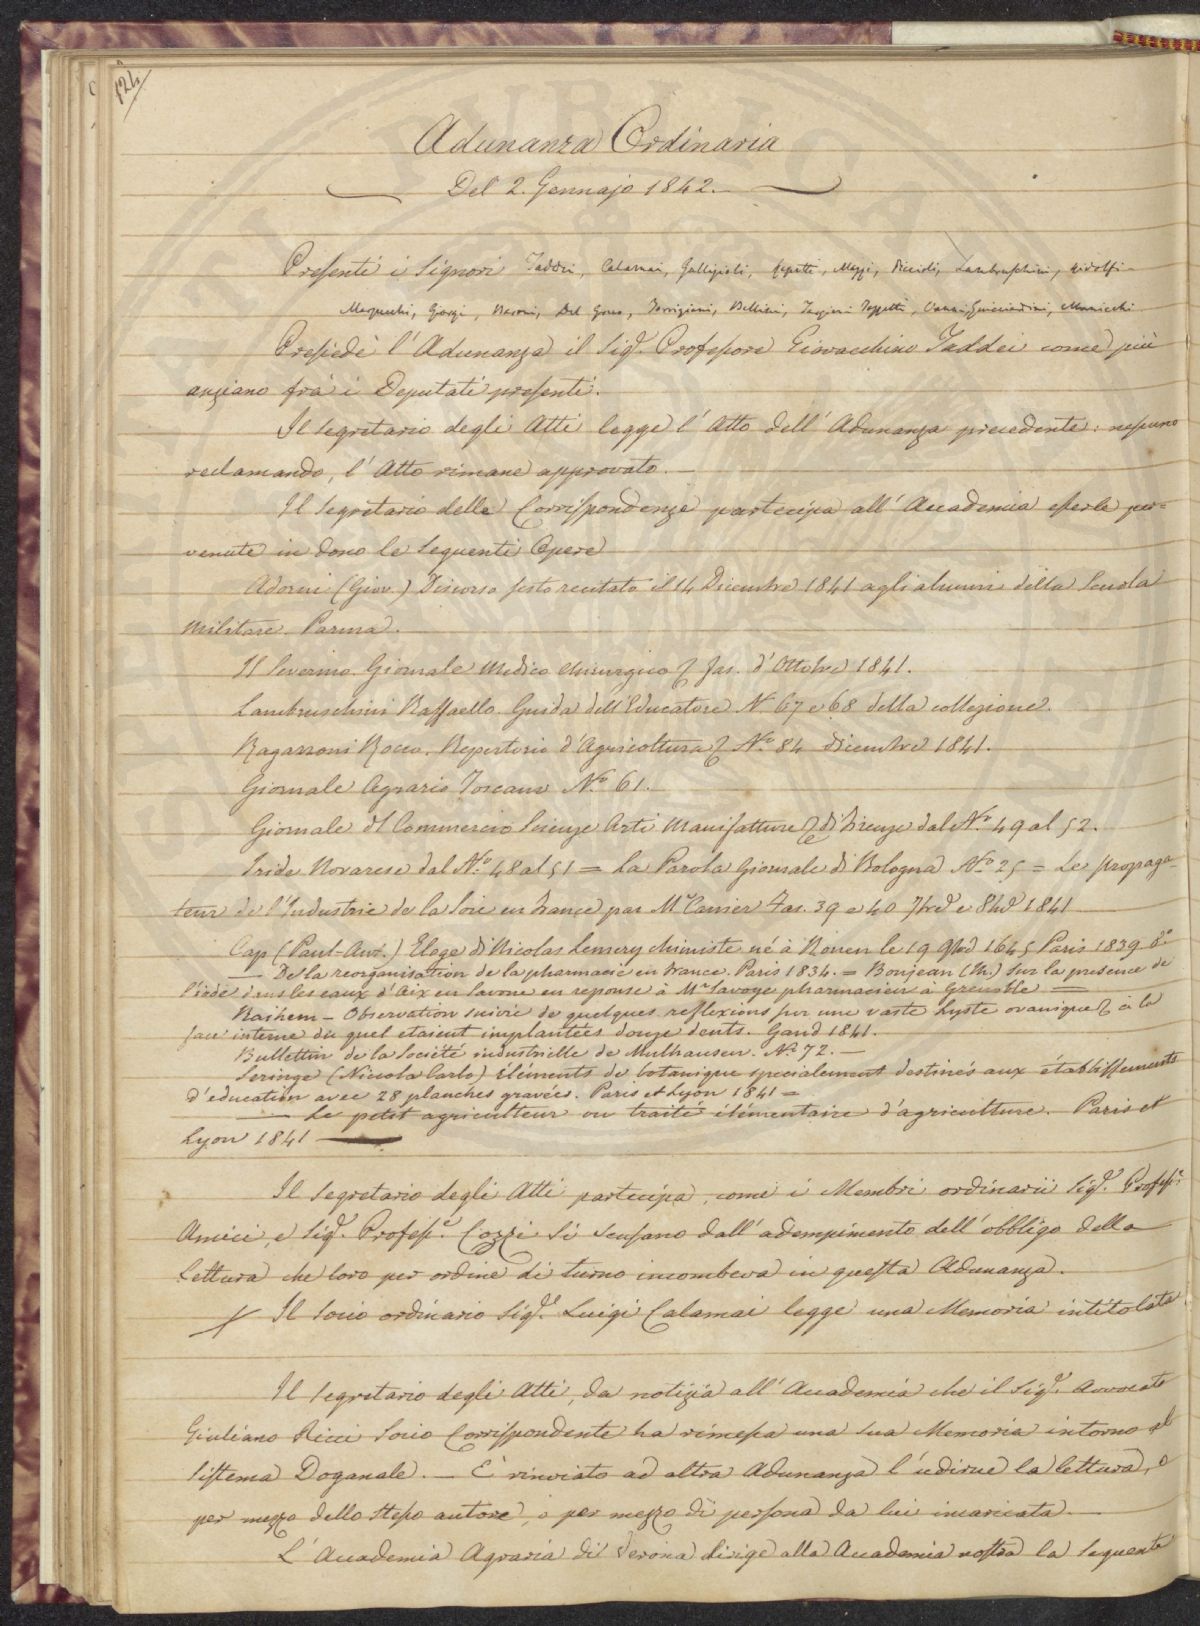 124
Adunanza Ordinaria
Del 2. Gennajo 1842.
Presenti i Signori Taddei, Calamai, Gallizioli, Mazzi, Piccioli, Lambruschini, Ridolfi
Giorgi, Baroni, Del Greco, Torrigiani, Bellini, Targioni Tozzetti, Guicciardini,
Presiede l'Adunanza il Sigr. Professore Giovacchino Taddei come più
anziano frà i Deputati presenti.
Il Segretario degli Atti legge l'Atto dell'Adunanza precedente: nessuno
reclamando, l'Atto rimane approvato.
Il Segretario delle Corrispondenze partecipa all'Accademia esserle per=
venute in dono le seguenti Opere
Adorni (Giov.) Discorso sesto recitato il 14 Dicembre 1841 agli alunni della Scuola
Militare. Parma.
Il Severino. Giornale Medico Chirurgico fas. d'Ottobre 1841.
Lambruschini Raffaello. Guida dell'Educatore N. 67 e 68 della collezione.
Ragazzoni Rocco. Repertorio d'Agricoltura No. 84 dicembre 1841.
Giornale Agrario Toscano No. 61.
Giornale del Commercio Scienze Arti Manifatture di Firenze dal No. 49 al 52.
Iride Novarese dal No. 48 al 51 = La Parola Giornale di Bologna No. 25 = Le propaga-
teur de l'Industrie de la Soie en France par Mr Carrier Fas. 39 e 40 7bre e 8bre 1841
Cap (Paul-Ant.) Eloge di Nicolas Lemery chimiste né à Rouen le 19 9bre 1645 Paris 1839 8o
— De la reorganisation de la pharmacie en France. Paris 1834. = Bonjean (M.) Sur la presence de
l'iode dans les eaux d'Aix en Savoie en reponse à Mr Savoye pharmacien à Grenoble =
— Observation suivie de quelques reflexions sur une vaste kyste à la
face interne du quel etaient implantées douze dents. Gand 1841.
Bullettin de la Société industrielle de Mulhausen. No. 72. —
Seringe (Niccola Carlo) Eléments de botanique specialement destinés aux établissements
d'éducation avec 28 planches gravées. Paris et Lyon 1841 =
— Le petit agriculteur ou traité élémentaire d'agriculture. Paris et
Lyon 1841
Il Segretario degli Atti partecipa, come i Membri ordinarii Sigr. Professr.
Amici, e Sigr. Professr. Cozzi si scusano dall'adempimento dell'obbligo della
Lettura che loro per ordine di turno incombeva in questa Adunanza.
Il Socio ordinario Sigr. Luigi Calamai legge una Memoria intitolata
Il Segretario degli Atti, da notizia all'Accademia che il Sigr. Avvocato
Giuliano Ricci Socio Corrispondente ha rimessa una sua Memoria intorno al
Sistema Doganale. — È rinviato ad altra Adunanza l'udirne la lettura, o
per mezzo dello stesso autore, o per mezzo di persona da lui incaricata.
L'Accademia Agraria di Verona dirige alla Accademia nostra la seguente